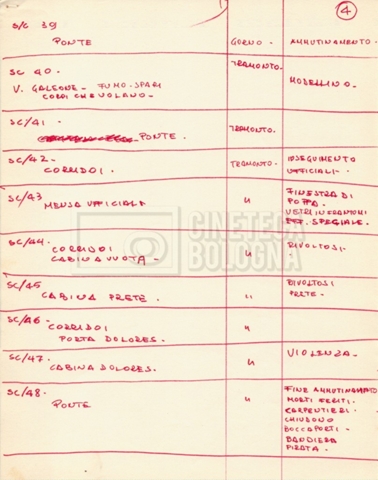 4
S/C 39
PONTE GIORNO - AMMUTINAMENTO.
SC 40 - TRAMONTO.
V. GALEONE - FUMO - SPARI MODELLINO -
CORPI CHE VOLANO -
SC/41 -
PONTE. TRAMONTO.
SC/42 - TRAMONTO INSEGUIMENTO
CORRIDOI. UFFICIALI -
SC/43
MENSA UFFICIALI " FINESTRA DI
POPPA.
VETRI INFRANGONI
EFF. SPECIALE.
SC/44 -
CORRIDOI " RIVOLTOSI -
CABINA VUOTA -
SC/45 RIVOLTOSI
CABINA PRETE. " PRETE.
SC/46 -
CORRIDOI "
PORTA DOLORES.
SC/47. " VIOLENZA -
CABINA DOLORES.
SC/48 -
PONTE " FINE AMMUTINAMENTO
MORTI FERITI -
CARPENTIERI -
CHIUDONO
BOCCAPORTI -
BANDIERA
PIRATA.
CINETECA
BOLOGNA